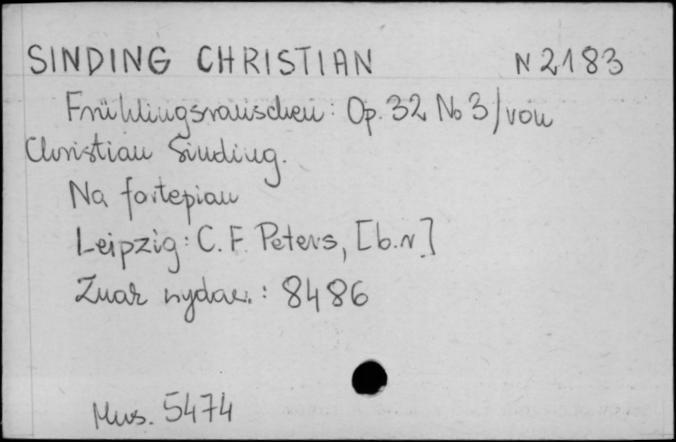 SINDING CHRISTIAN N 2183
Frühlingsrauschen: Op. 32 No 3 / von
Christian Sinding.
Na fortepian
Leipzig: C. F. Peters, [b.r.]
Znak wydaw.: 8486
Mus. 5474